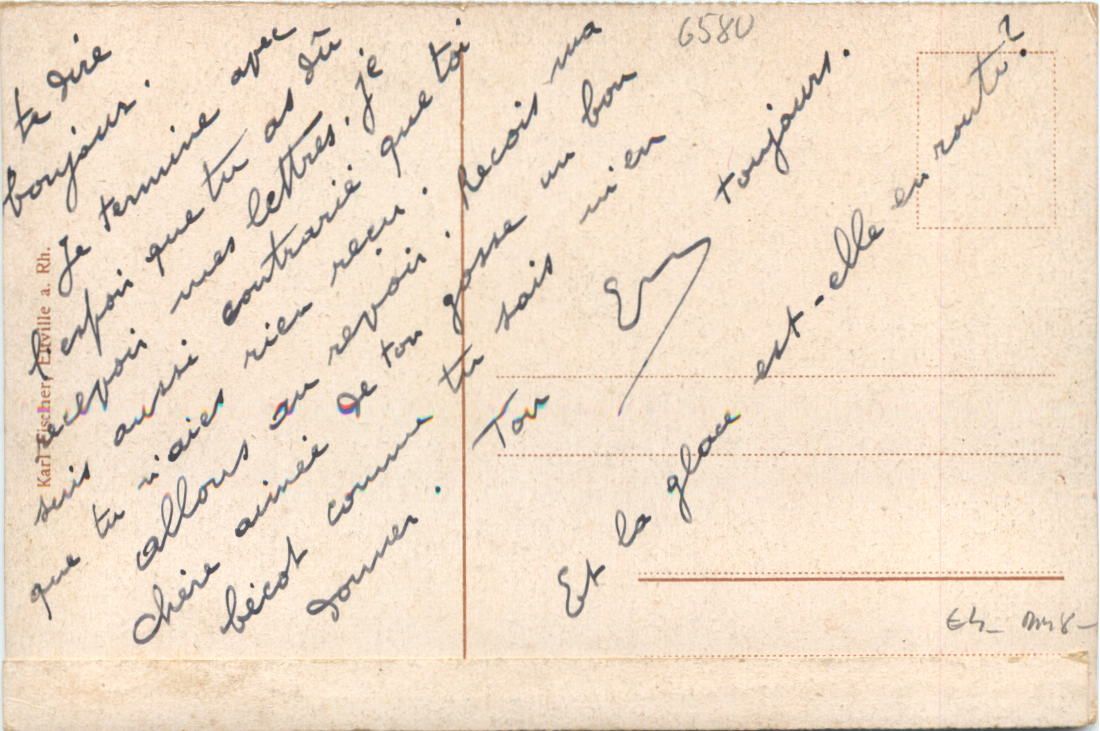 te dire
bonjour.
Je termine avec
l'espoir que tu as dû
recevoir mes lettres. je
suis aussi contrarié que toi
que tu n'aies rien reçu.
allons au revoir. Recois ma
chère aimée de ton gosse un bon
bécot comme tu sais m'en
donner.
Ton toujours.
Et la glace est-elle en route?
Karl Fischer, Eltville a. Rh.
6580